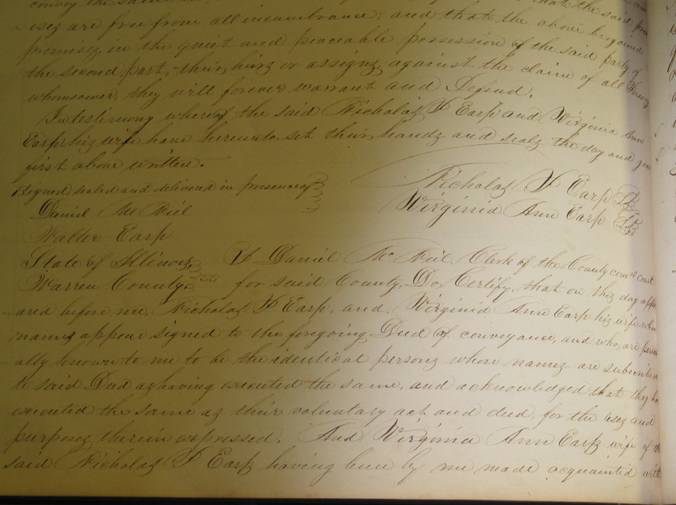 convey the same in that the said prem
ises are free from all incumbrance; and that the above bargained
premises, in the quiet and peaceable possession of the said party of
the second part, their heirs or assigns, against the claim of all Persons
whomsoever they will forever warrant and Defend.
In testimony whereof the said Nicholas P Earp and Virginia Ann
Earp his wife have hereunto set their hands and seals the day and year
first above written.
Signed sealed and delivered in presence of Nicholas P Earp
Daniel McNeil Virginia Ann Earp
Walter Earp
State of Illinois, I Daniel McNeil Clerk of the County court
Warren County. for said County, Do, Certify, that on this day appe
and before me, Nicholas P Earp, and Virginia Ann Earp his wife whose
names appear signed to the foregoing Deed of conveyance, and who, are person
ally known to me to be the identical persons whose names are subscribed
to said Deed as having executed the same, and acknowledged that they had
executed the same as their voluntary act and deed, for the uses and
purposes therein expressed. And Virginia Ann Earp wife of the
said Nicholas P Earp having been by me made acquainted with